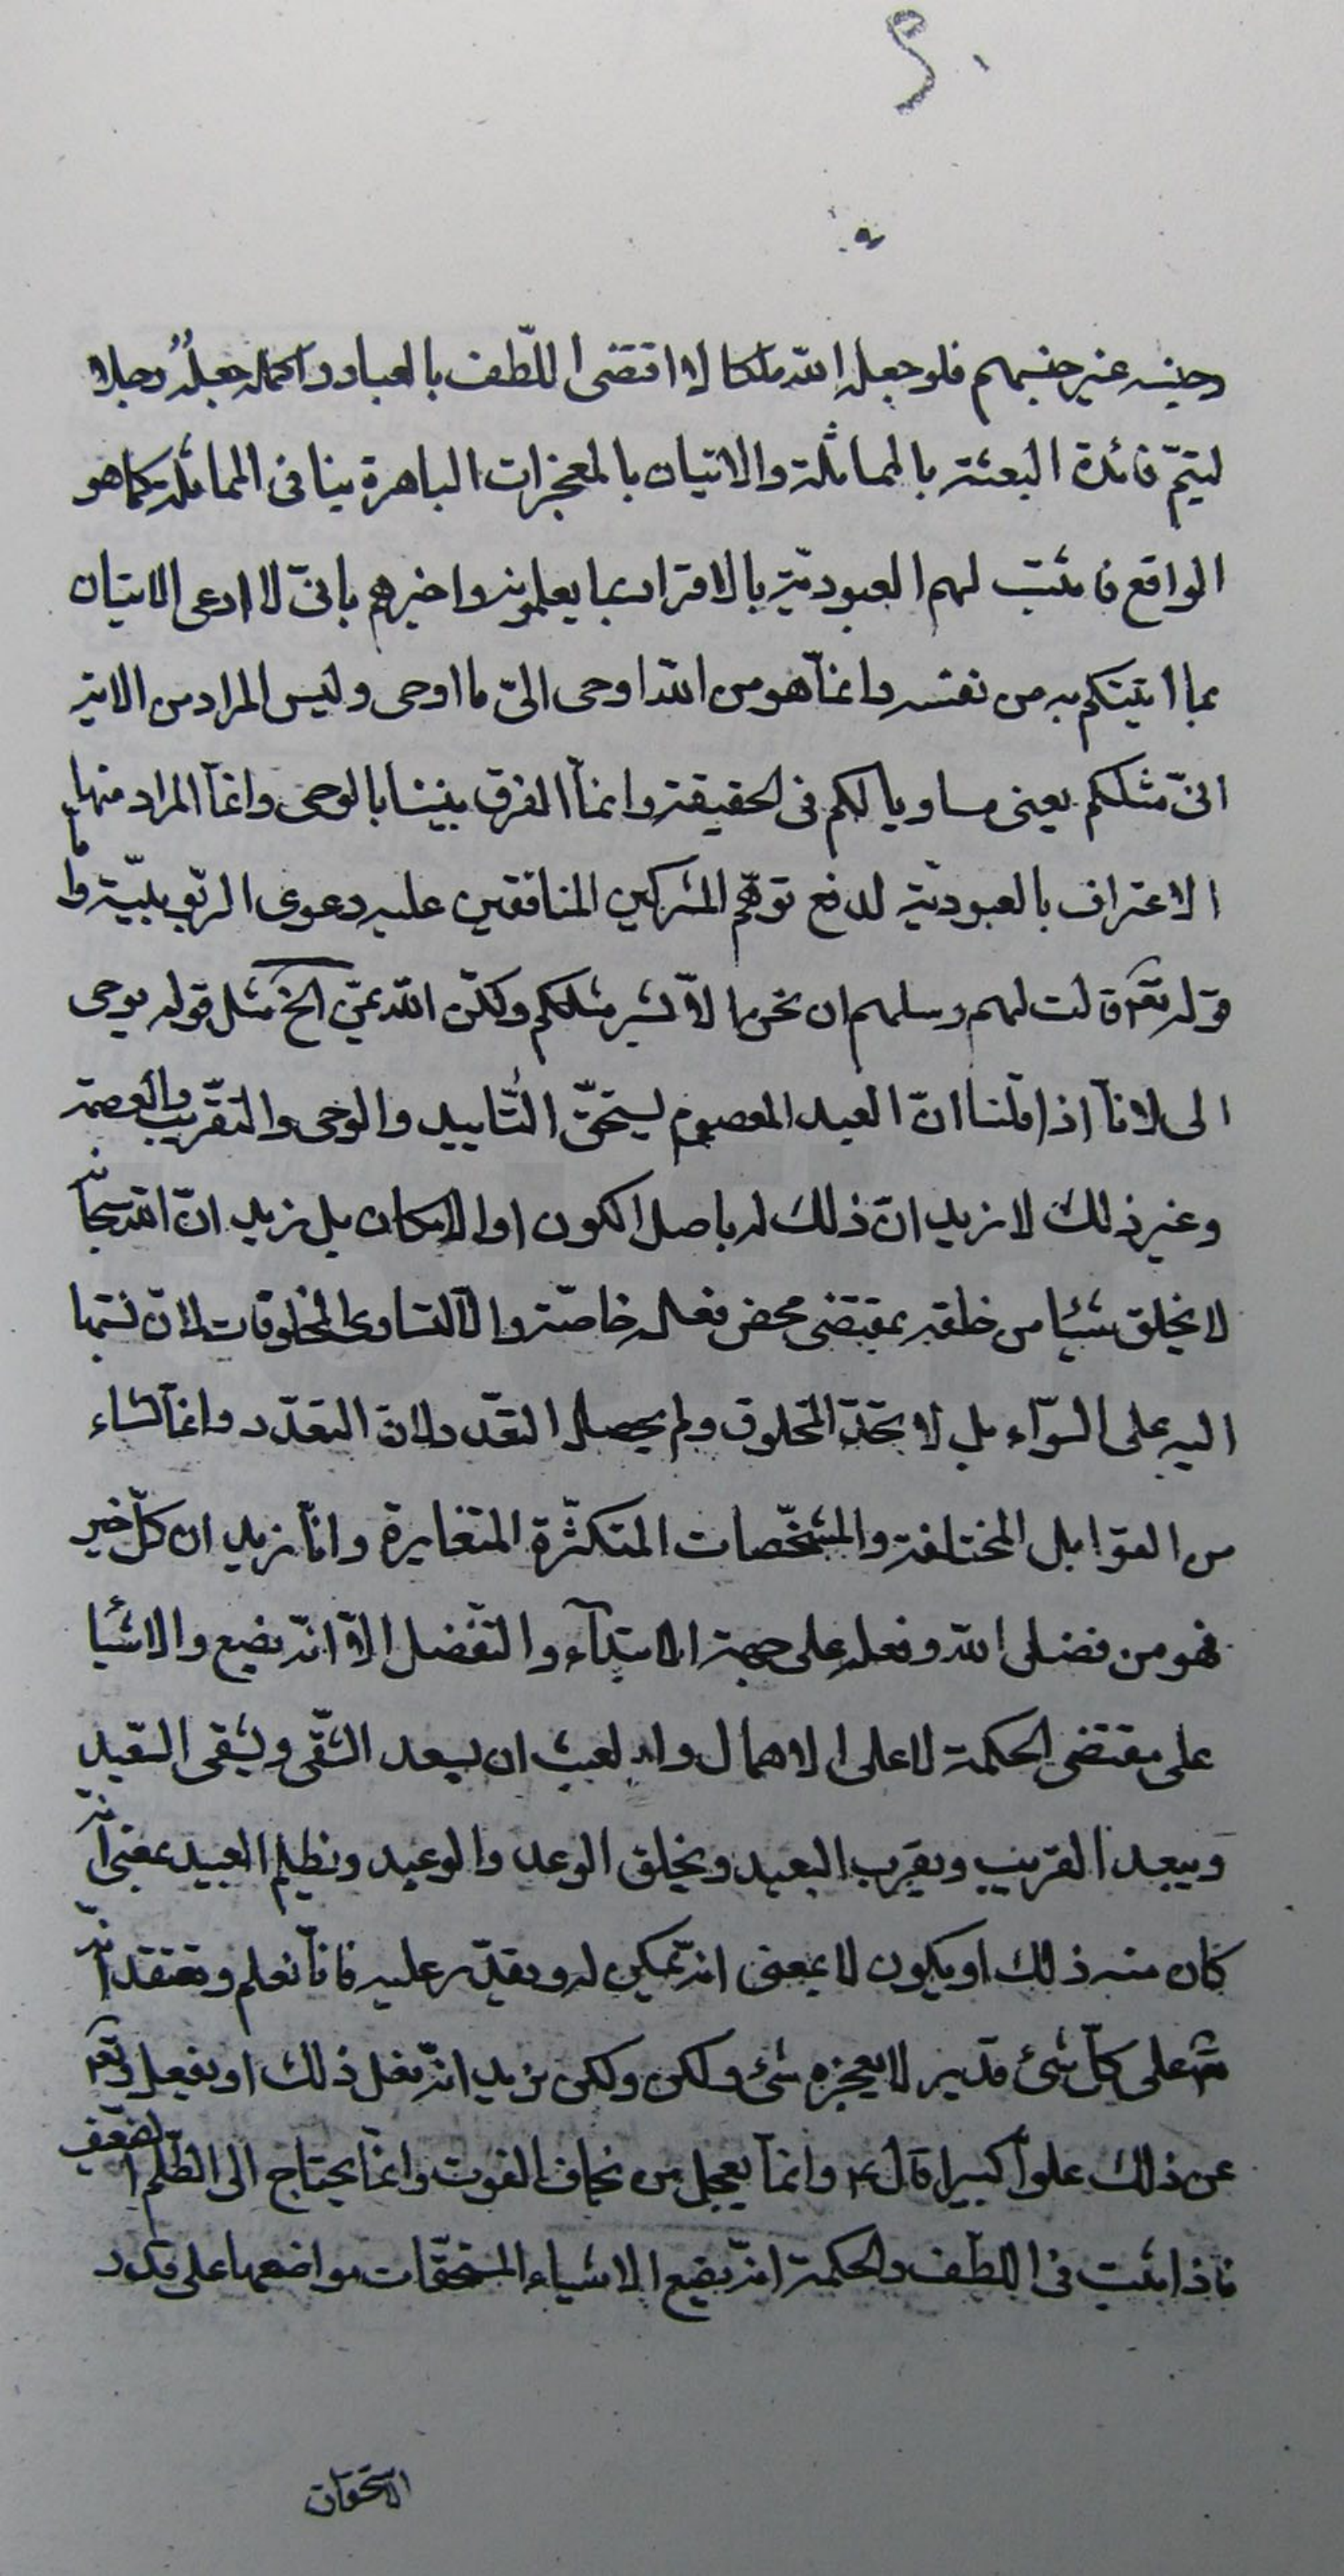 ٢٠
وجنسه غير جنسهم فلو جعله الله ملكا لا اقتضى اللّطف بالعباد و الحكمة جعله رجلا
ليتمّ فائدة البعثة بالمماثلة والاتيان بالمعجزات الباهرة ينافى المماثلة كما هو
الواقع فاثبت لهم العبوديّة بالاقرار بما يعلمونه واخبرهم بانّى لا ادعى الاتيان
بما اتيتكم به من نفسه وانمّا هو من الله اوحى الىّ ما اوحى وليس المراد من الاية
انىّ مثلكم يعنى مساويا لكم فى الحقيقة وانمّا الفرق بيننا بالوحى وانمّا المراد منها
الاعتراف بالعبوديّة لدفع توهّم المشركين المنافقين عليه دعوى الربّوبيّة واما
قوله تعالى قالت لهم رسلهم ان نحن الاّ بشر مثلكم ولكنّ الله يمنّ الخ مثل قوله يوحى
الى لانّا اذا قلنا انّ العبد المعصوم يستحقّ التّأييد والوحى والتقّريب والعصمة
وغير ذلك لا نريد انّ ذلك له باصل الكون او الامكان بل نريد انّ الله سبحانه
لا يخلق شيئا من خلقه بمقتضى محض فعله خاصّة والاّ لتساوى المخلوقات لانّ نسبتها
اليه على السّواء بل لاتحّد المخلوق ولم يحصل التعّدد لانّ التعّدد وانمّا نشاء
من القوابل المختلفة والمشخّصات المتكثّرة المتغايرة وانّا نريد ان كلّ خير
فهو من فضل الله وفعله على جهة الابتدآء والتفّضل الاّ انّه يضع والاشيا
على مقتضى الحكمة لا على الاهمال والعبث ان يسعد الشّقى ويشقى السّعيد
ويبعد القريب ويقرب البعيد ويخلق الوعد والوعيد ويظلم العبيد بمعنى انّه
كان منه ذلك او يكون لا بمعنى انّه يمكن له ويقدر عليه فانّا نعلم ونعتقد انّه
على كلّ شئ قدير لا يعجزه شئ ولكن ولكن نريد انّه يفعل ذلك او يفعل وتعالى
عن ذلك علواّ كبيرا قال ع وانمّا يعجل من يخاف الفوت وانمّا يحتاج الى الظّلم الضّعيف
فاذا ثبت فى اللّطف والحكمة انّه يضع الاشياء المستحقّات مواضعها على قدر
الاستحقاق